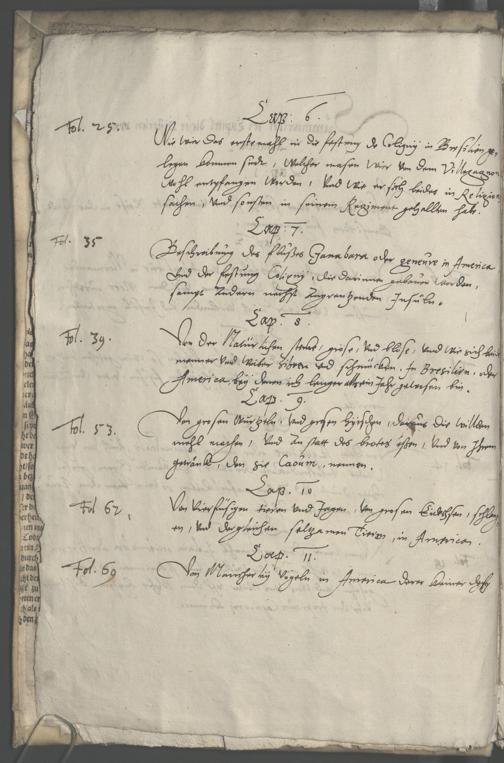 Cap: 6.
Fol. 25. Wie wir das erste mahl in die festung de Coligny in Bresilien ge-
legen kommen sinde, welcher masen wir von dem Villegagnon
wohl entpfangen worden, und wie er sich beides in Religions
sachen, und sonsten in seinem Regiment gehallten hab.
Cap: 7.
Fol. 35 Beschreibung des flußes Ganabara oder geneure in America
und der festung Coligny, die darinnen gebauet worden,
sampt andern nechst angrentzenden Insuln.
Cap. 8.
Fol. 39. Von der Natürlichen sterck, gröse, und blöse, und wie sich die
menner und weiber Ihren und schmücken. In Bresilien, oder
America, bey denen ich lenger als ein Jahr gewesen bin.
Cap. 9.
Fol. 53. Von grosen wurtzeln, und grosen hirschen, daraus die willden
mehl machen, und an statt des brotes essen, und von Ihrem
getränk, den sie Caoüm, nennen.
Cap. 10
Fol 62, Von vierfüsigen tieren und Jagen, von grosen Eidechsen, schlang
en, und dergleichen seltzamen Tieren, in America.
Cap. 11.
Fol. 69 Von Mancherley Vögeln in America derer keiner